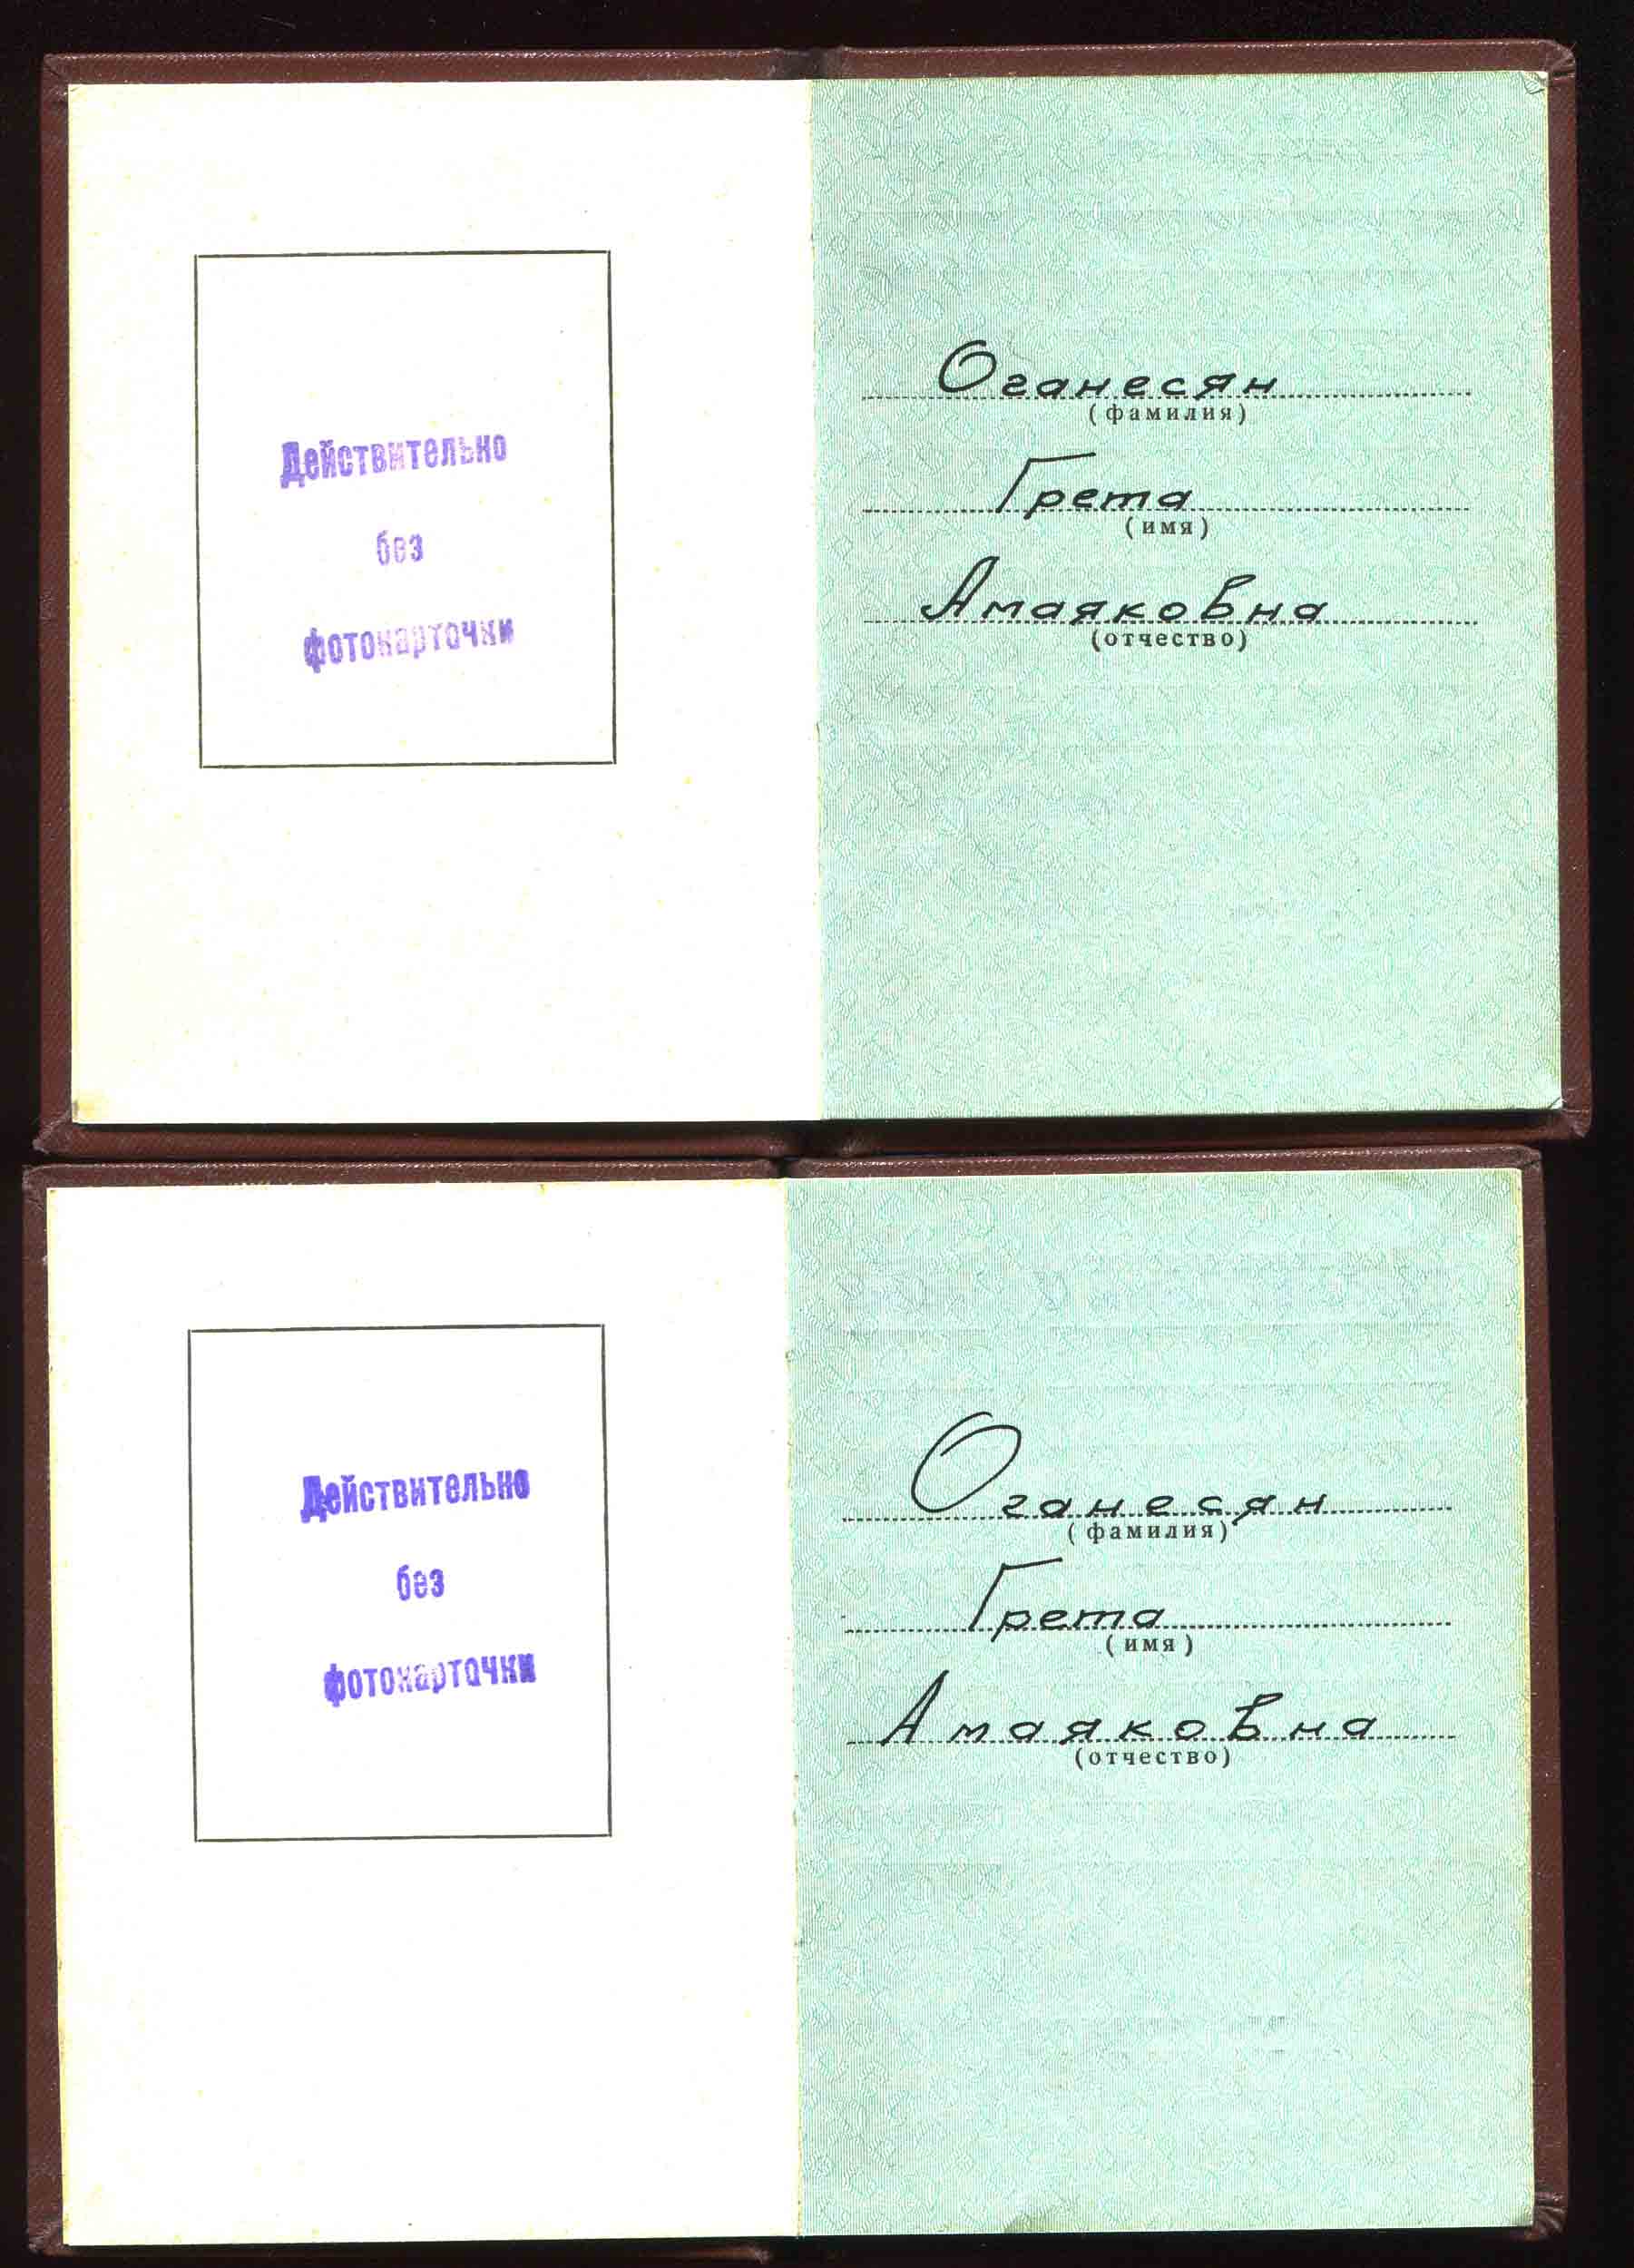 Действительно
без
фотокарточки
Оганесян
(фамилия)
Грета
(имя)
Амаяковна
(отчество)
Действительно
без
фотокарточки
Оганесян
(фамилия)
Грета
(имя)
Амаяковна
(отчество)